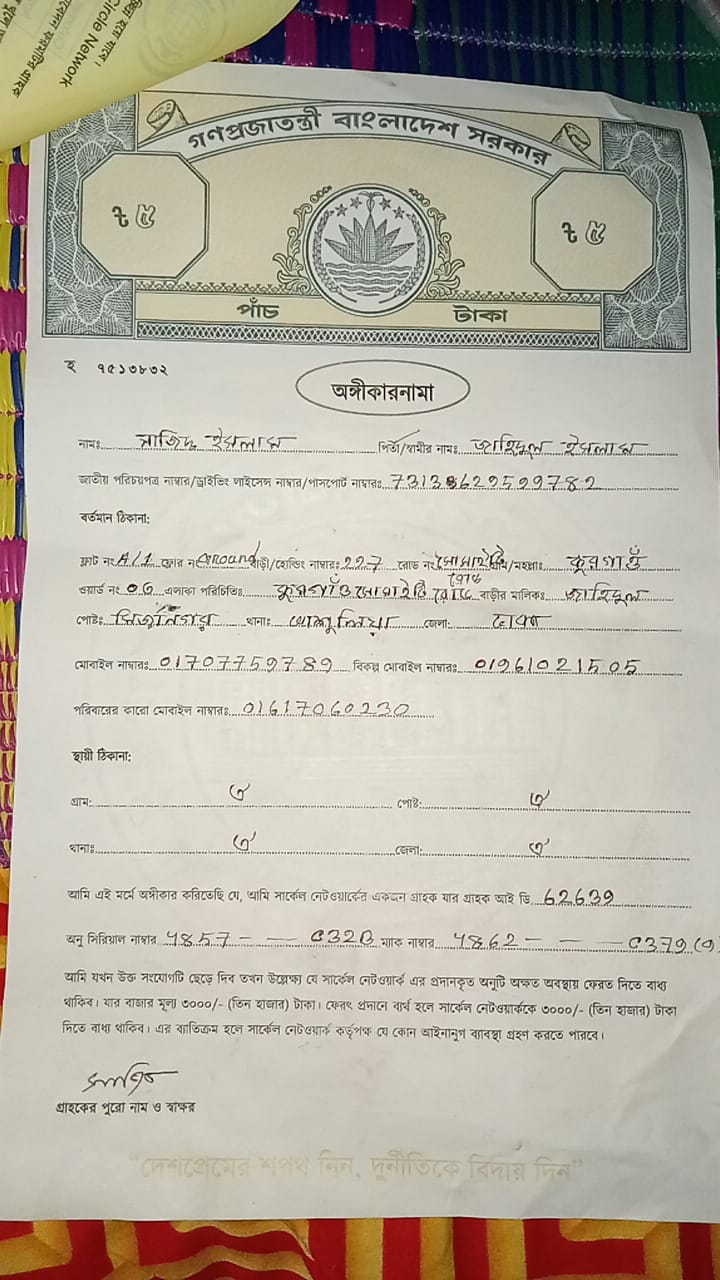 Circle Network
গণপ্রজাতন্ত্রী বাংলাদেশ সরকার
৳ ৫ ৳ ৫
পাঁচ টাকা
হ ৭৫১৩৮৩২
অঙ্গীকারনামা
নামঃ সাজিদ ইসলাম পিতা/স্বামীর নামঃ জাহিদুল ইসলাম
জাতীয় পরিচয়পত্র নাম্বার/ড্রাইভিং লাইসেন্স নাম্বার/পাসপোর্ট নাম্বারঃ
বর্তমান ঠিকানা:
ফ্লাট নং A/1 ফ্লোর নং Ground বাড়ী/হোল্ডিং নাম্বারঃ 227 রোড নং সোসাইটি /মহল্লাঃ কুরগাঁও
ওয়ার্ড নং 06 এলাকা পরিচিতিঃ কুরগাঁও সোসাইটি রোড বাড়ীর মালিকঃ জাহিদুল
পোষ্টঃ থানাঃ আশুলিয়া জেলা: ঢাকা
মোবাইল নাম্বারঃ 01707759789 বিকল্প মোবাইল নাম্বারঃ 01961021505
পরিবারের কারো মোবাইল নাম্বারঃ 01617060230
স্থায়ী ঠিকানা:
গ্রাম: ঐ পোষ্ট: ঐ
থানাঃ ঐ জেলা: ঐ
আমি এই মর্মে অঙ্গীকার করিতেছি যে, আমি সার্কেল নেটওয়ার্কের একজন গ্রাহক যার গ্রাহক আই ডি 62639
অনু সিরিয়াল নাম্বার 4857 - - C32B ম্যাক নাম্বার 4862 - - - C379 (9)
আমি যখন উক্ত সংযোগটি ছেড়ে দিব তখন উল্লেক্ষ্য যে সার্কেল নেটওয়ার্ক এর প্রদানকৃত অনুটি অক্ষত অবস্থায় ফেরত দিতে বাধ্য
থাকিব। যার বাজার মূল্য ৩০০০/- (তিন হাজার) টাকা। ফেরৎ প্রদানে ব্যর্থ হলে সার্কেল নেটওয়ার্ককে ৩০০০/- (তিন হাজার) টাকা
দিতে বাধ্য থাকিব। এর ব্যতিক্রম হলে সার্কেল নেটওয়ার্ক কর্তৃপক্ষ যে কোন আইনানুগ ব্যাবস্থা গ্রহণ করতে পারবে।
গ্রাহকের পুরো নাম ও স্বাক্ষর
"দেশপ্রেমের শপথ নিন, দুর্নীতিকে বিদায় দিন"